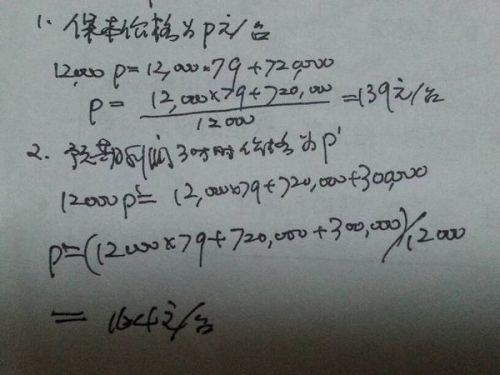 1. 保本价格为P元/台
12,000 P = 12,000×79+720,000
P = (12,000×79+720,000)/12000 = 139元/台
2. 预期利润时价格为P'
12000P' = 12,000×79+720,000+300,000
P' = (12000×79+720,000+300,000)/12000
= 164元/台